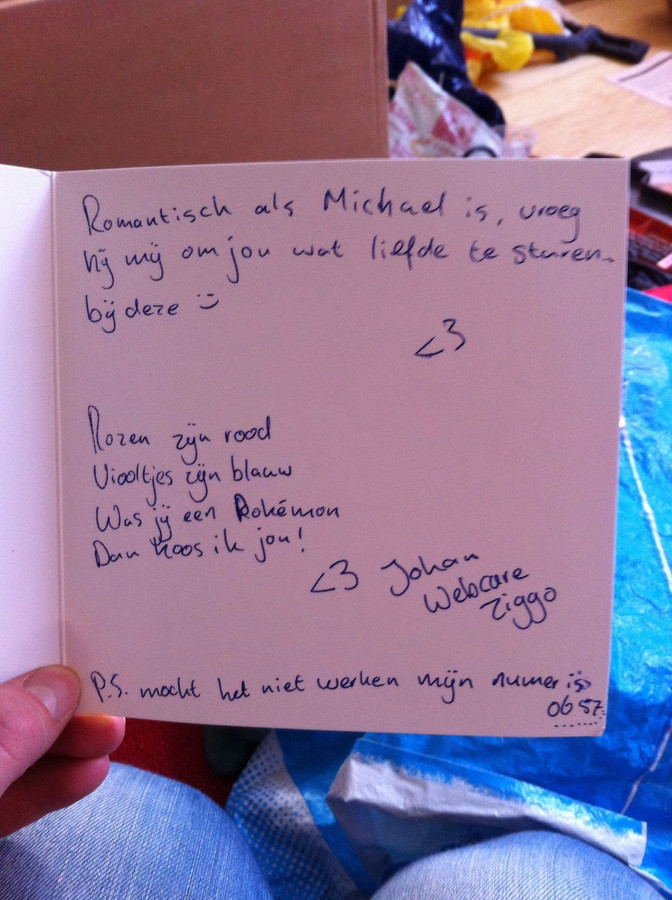 Romantisch als Michael is, vroeg
hij mij om jou wat liefde te sturen.
bij deze :)
<3
Rozen zijn rood
Viooltjes zijn blauw
Was jij een Pokémon
Dan koos ik jou!
<3 Johan
Webcare
Ziggo
P.S. mocht het niet werken mijn numer is
06 57.
......